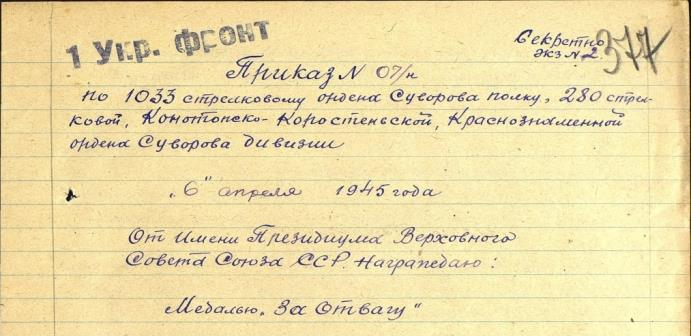 1 Укр. фронт
Секретно
экз № 2.
377
Приказ N 07/н
по 1033 стрелковому ордена Суворова полку, 280 стрел-
ковой, Конотопско-Коростеньской, Краснознаменной
ордена Суворова дивизии
"6" апреля 1945 года
От Имени Президиума Верховного
Совета Союза ССР. Награждаю:
Медалью "За Отвагу"